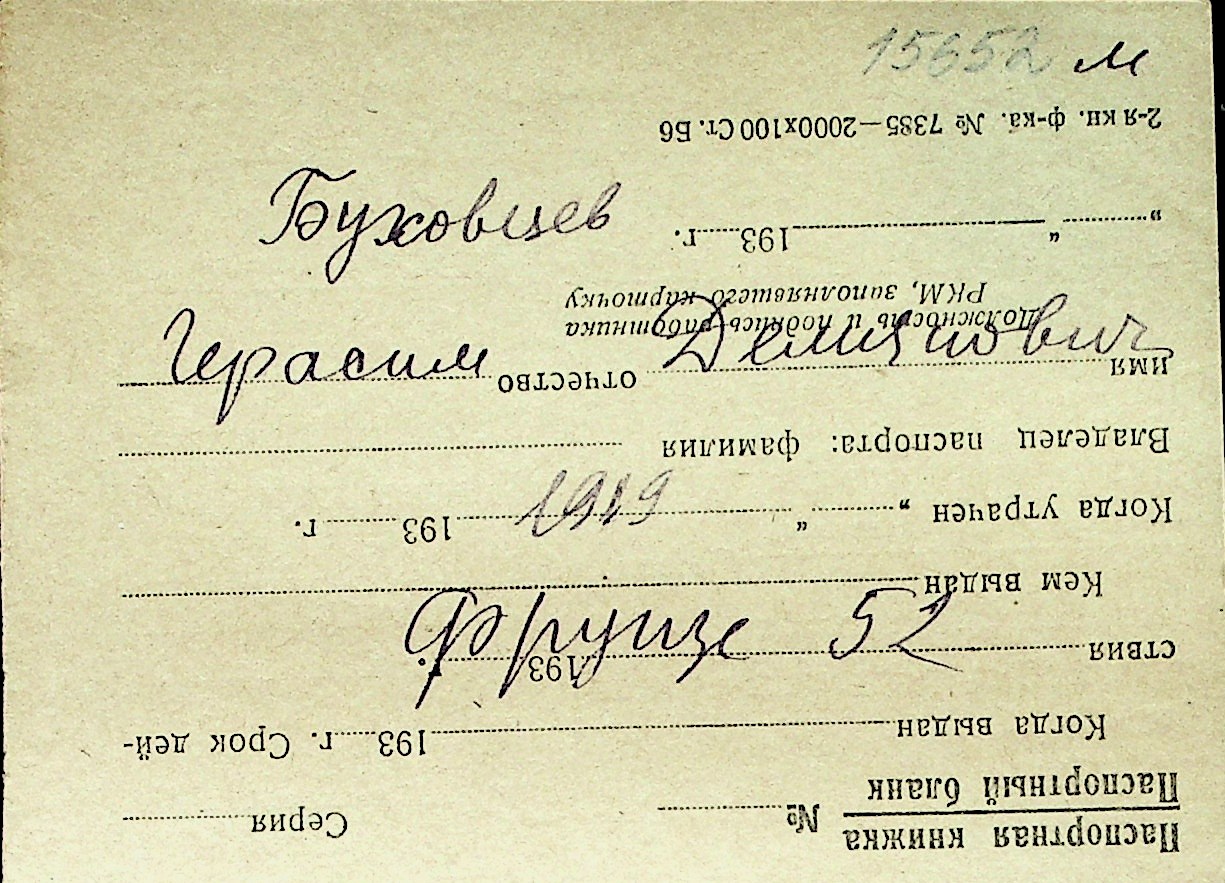 15652 м
Буховцев
Герасим Демянович
1919
Фрунзе 52
Паспортная книжка
Паспортный бланк № Серия
Когда выдан 193 г. Срок дей-
ствия 193 г.
Кем выдан
Когда утрачен „ “ 193 г.
Владелец паспорта: фамилия
имя отчество
Должность и подпись работника
РКМ, заполнявшего карточку
„ “ 193 г.
2-я кн. ф-ка. № 7385—2000х100 Ст. Б6